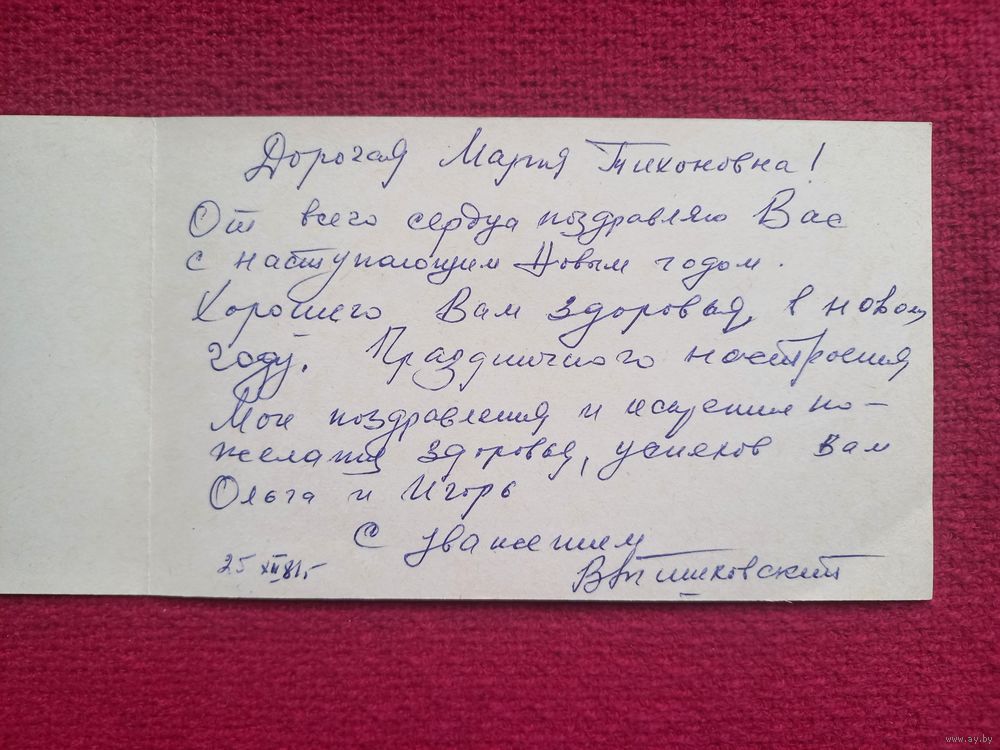 Дорогая Мария Тихоновна!
От всего сердца поздравляю Вас
с наступающим Новым годом.
Хорошего Вам здоровья, в новом
году. Праздничного настроения
Мои поздравления и искренние по-
желания здоровья, успехов Вам
Ольга и Игорь
С уважением
25 XII 81 г.
www.ay.by